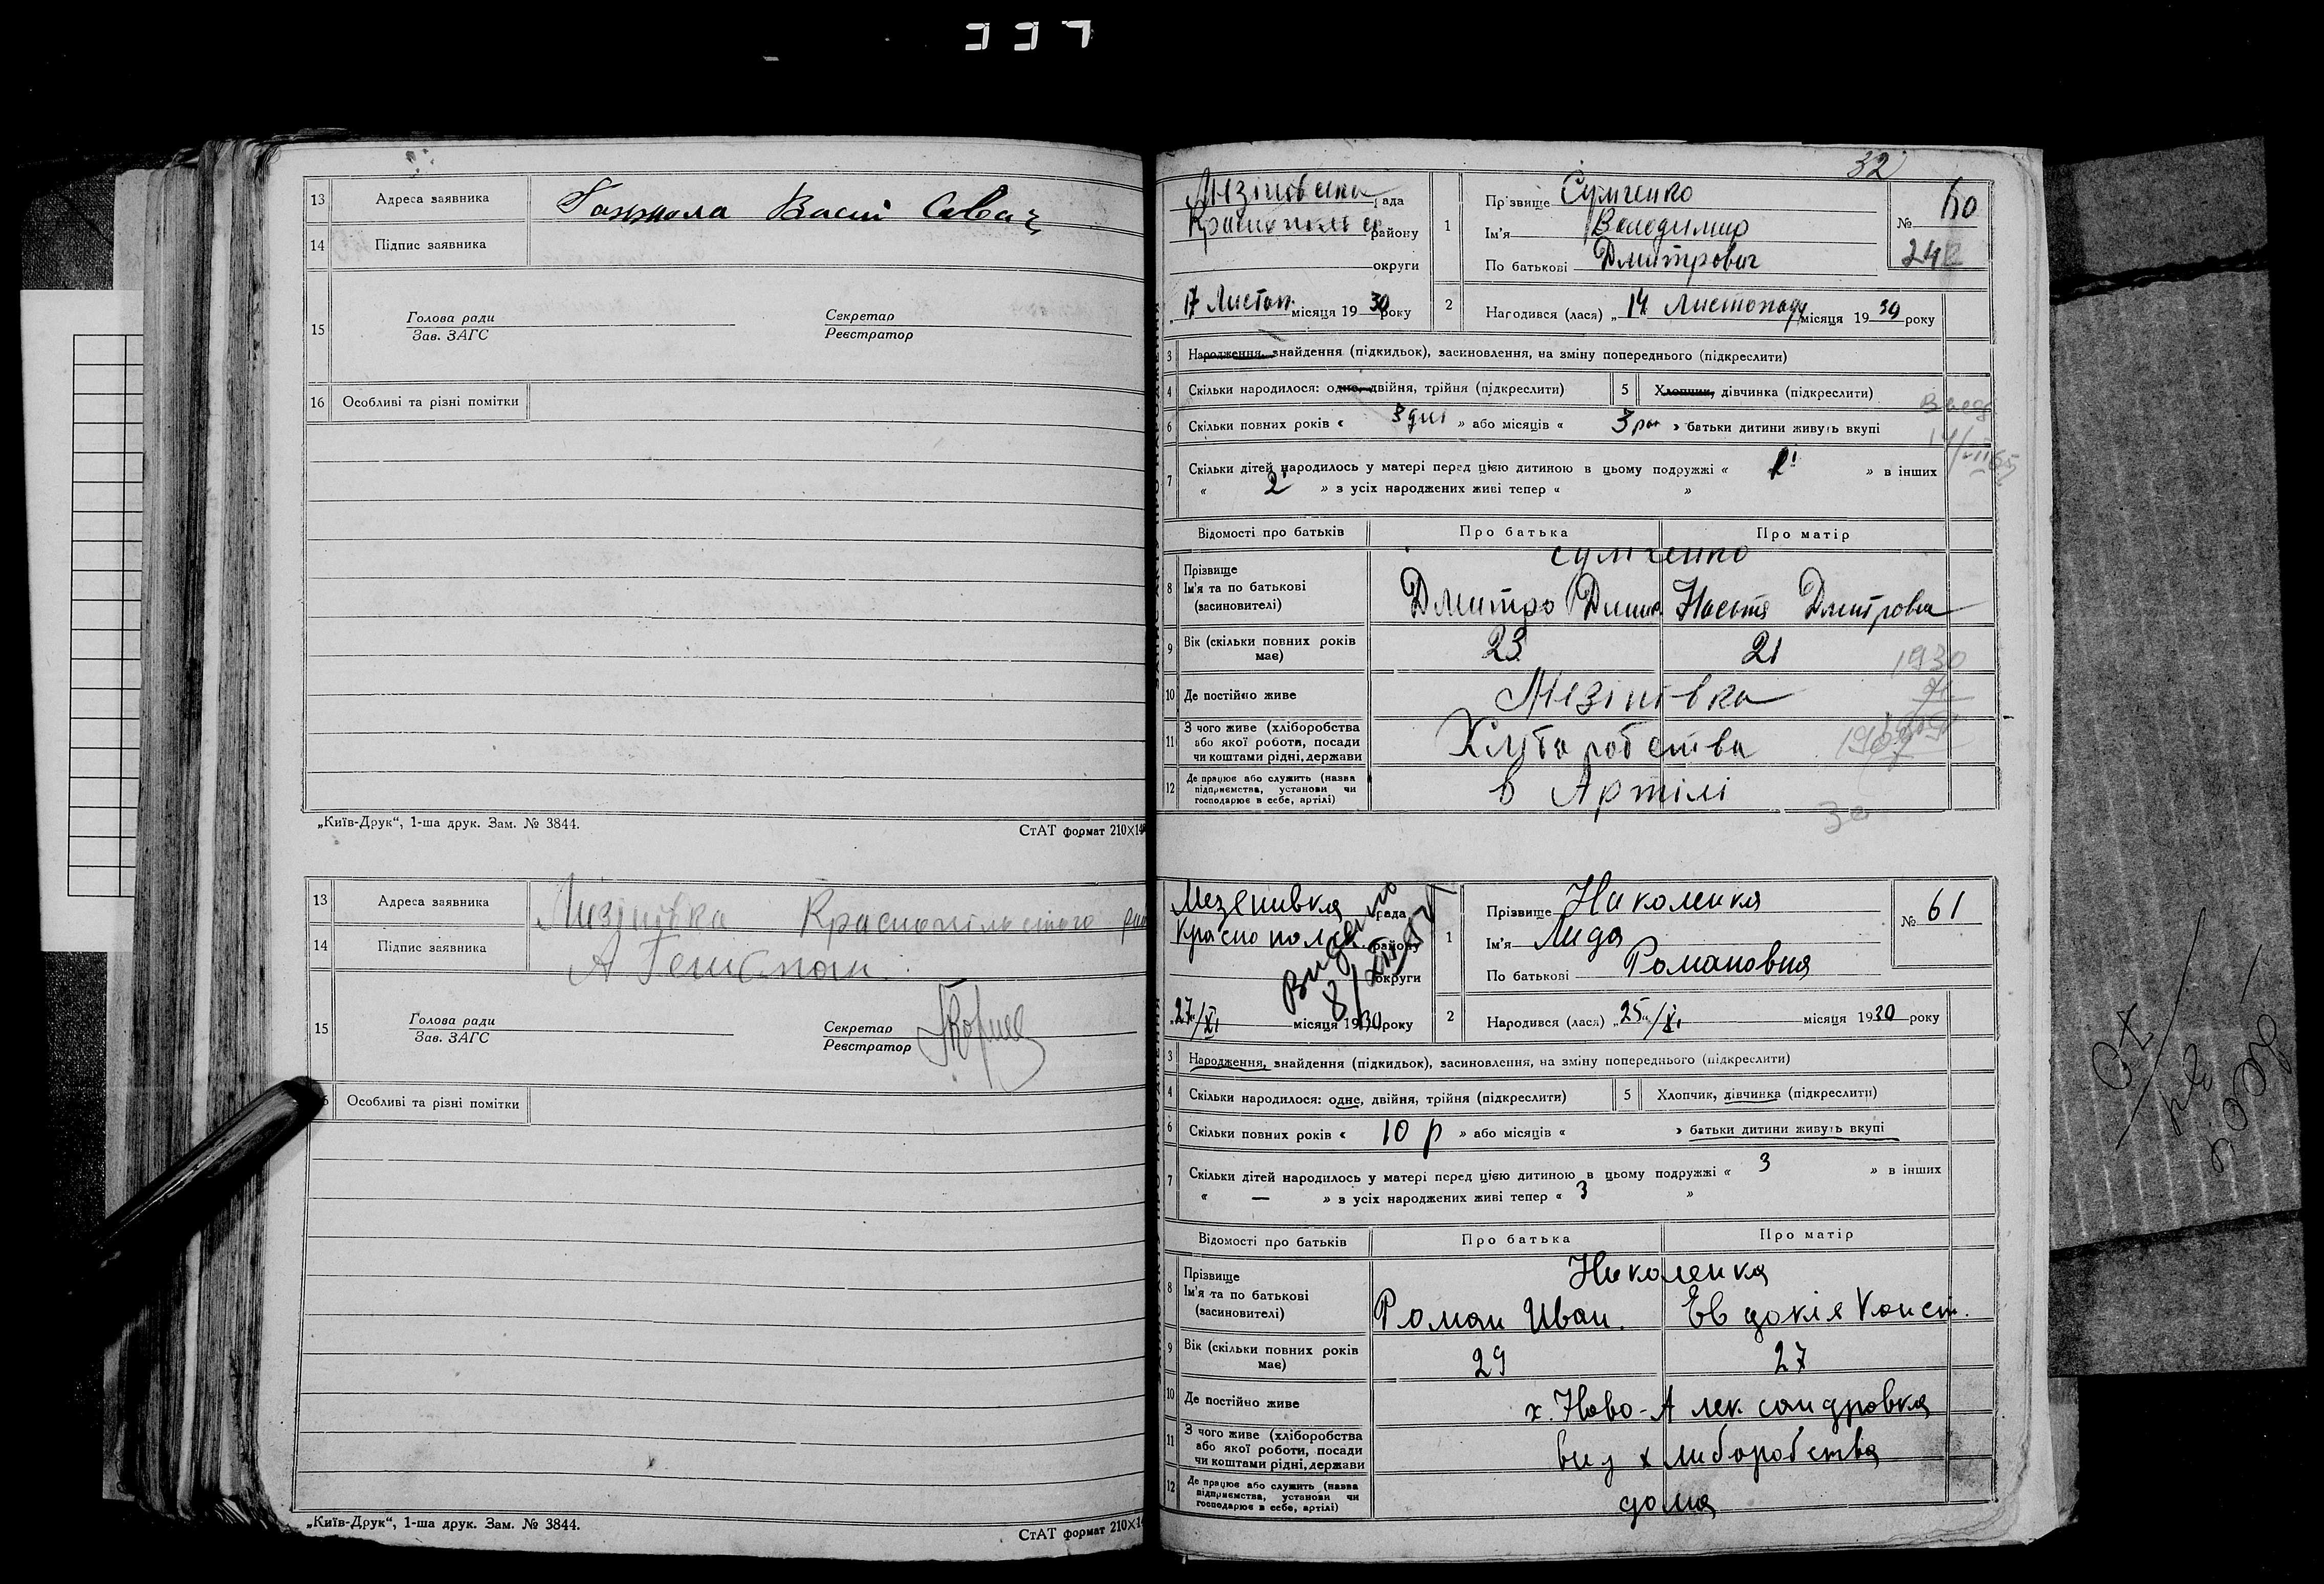 13 Адреса заявника
Васіл Савач
14 Підпис заявника
15 Голова ради
Зав. ЗАГС
Секретар
Реєстратор
16 Особливі та різні помітки
„Київ-Друк“, 1-ша друк. Зам. № 3844.
СтАТ формат 210×14
13 Адреса заявника
Мизінівка Краснопільського
14 Підпис заявника
15 Голова ради
Зав. ЗАГС
Секретар
Реєстратор
Особливі та різні помітки
„Київ-Друк“, 1-ша друк. Зам. № 3844.
СтАТ формат 210×14
32
Мезінівська рада
району
округи
17 Листоп. місяця 1930 року
1 Прізвище Сумченко
Ім'я Володимир
По батькові Дмитрович
№ 60
2 Народився (лася) „14 Листопада місяця 1930 року
3 Народження, знайдення (підкидьок), засиновлення, на зміну попереднього (підкреслити)
4 Скільки народилося: одне, двійня, трійня (підкреслити)
5 Хлопчик, дівчинка (підкреслити)
6 Скільки повних років « 3 дні » або місяців « 3 рок » батьки дитини живуть вкупі
7 Скільки дітей народилось у матері перед цією дитиною в цьому подружжі « » в інших
« 2 » з усіх народжених живі тепер « »
Відомості про батьків
Про батька
Про матір
8 Прізвище
Ім'я та по батькові
(засиновителі)
Сумченко
Дмитро Дмит Настя Дмитровна
9 Вік (скільки повних років має)
23
21
1930
10 Де постійно живе
Мезінівка
11 З чого живе (хліборобства
або якої роботи, посади
чи коштами рідні, держави
Хліборобства
12 Де працює або служить (назва
підприємства, установи чи
господарює в себе, артілі)
в Артілі
Мезенивка рада
Краснопольск. району
округи
Видано
„27“/XI місяця 1930 року
1 Прізвище Николенка
Ім'я Лида
По батькові Романовна
№ 61
2 Народився (лася) „25“/XI місяця 1930 року
3 Народження, знайдення (підкидьок), засиновлення, на зміну попереднього (підкреслити)
4 Скільки народилося: одне, двійня, трійня (підкреслити)
5 Хлопчик, дівчинка (підкреслити)
6 Скільки повних років « 10 р » або місяців « » батьки дитини живуть вкупі
7 Скільки дітей народилось у матері перед цією дитиною в цьому подружжі « 3 » в інших
« — » з усіх народжених живі тепер « 3 »
Відомості про батьків
Про батька
Про матір
8 Прізвище
Ім'я та по батькові
(засиновителі)
Николенка
Роман Иван. Евдокія Конст.
9 Вік (скільки повних років має)
29
27
10 Де постійно живе
х. Ново-Александровка
11 З чого живе (хліборобства
або якої роботи, посади
чи коштами рідні, держави
вид хлиборобства
12 Де працює або служить (назва
підприємства, установи чи
господарює в себе, артілі)
дома